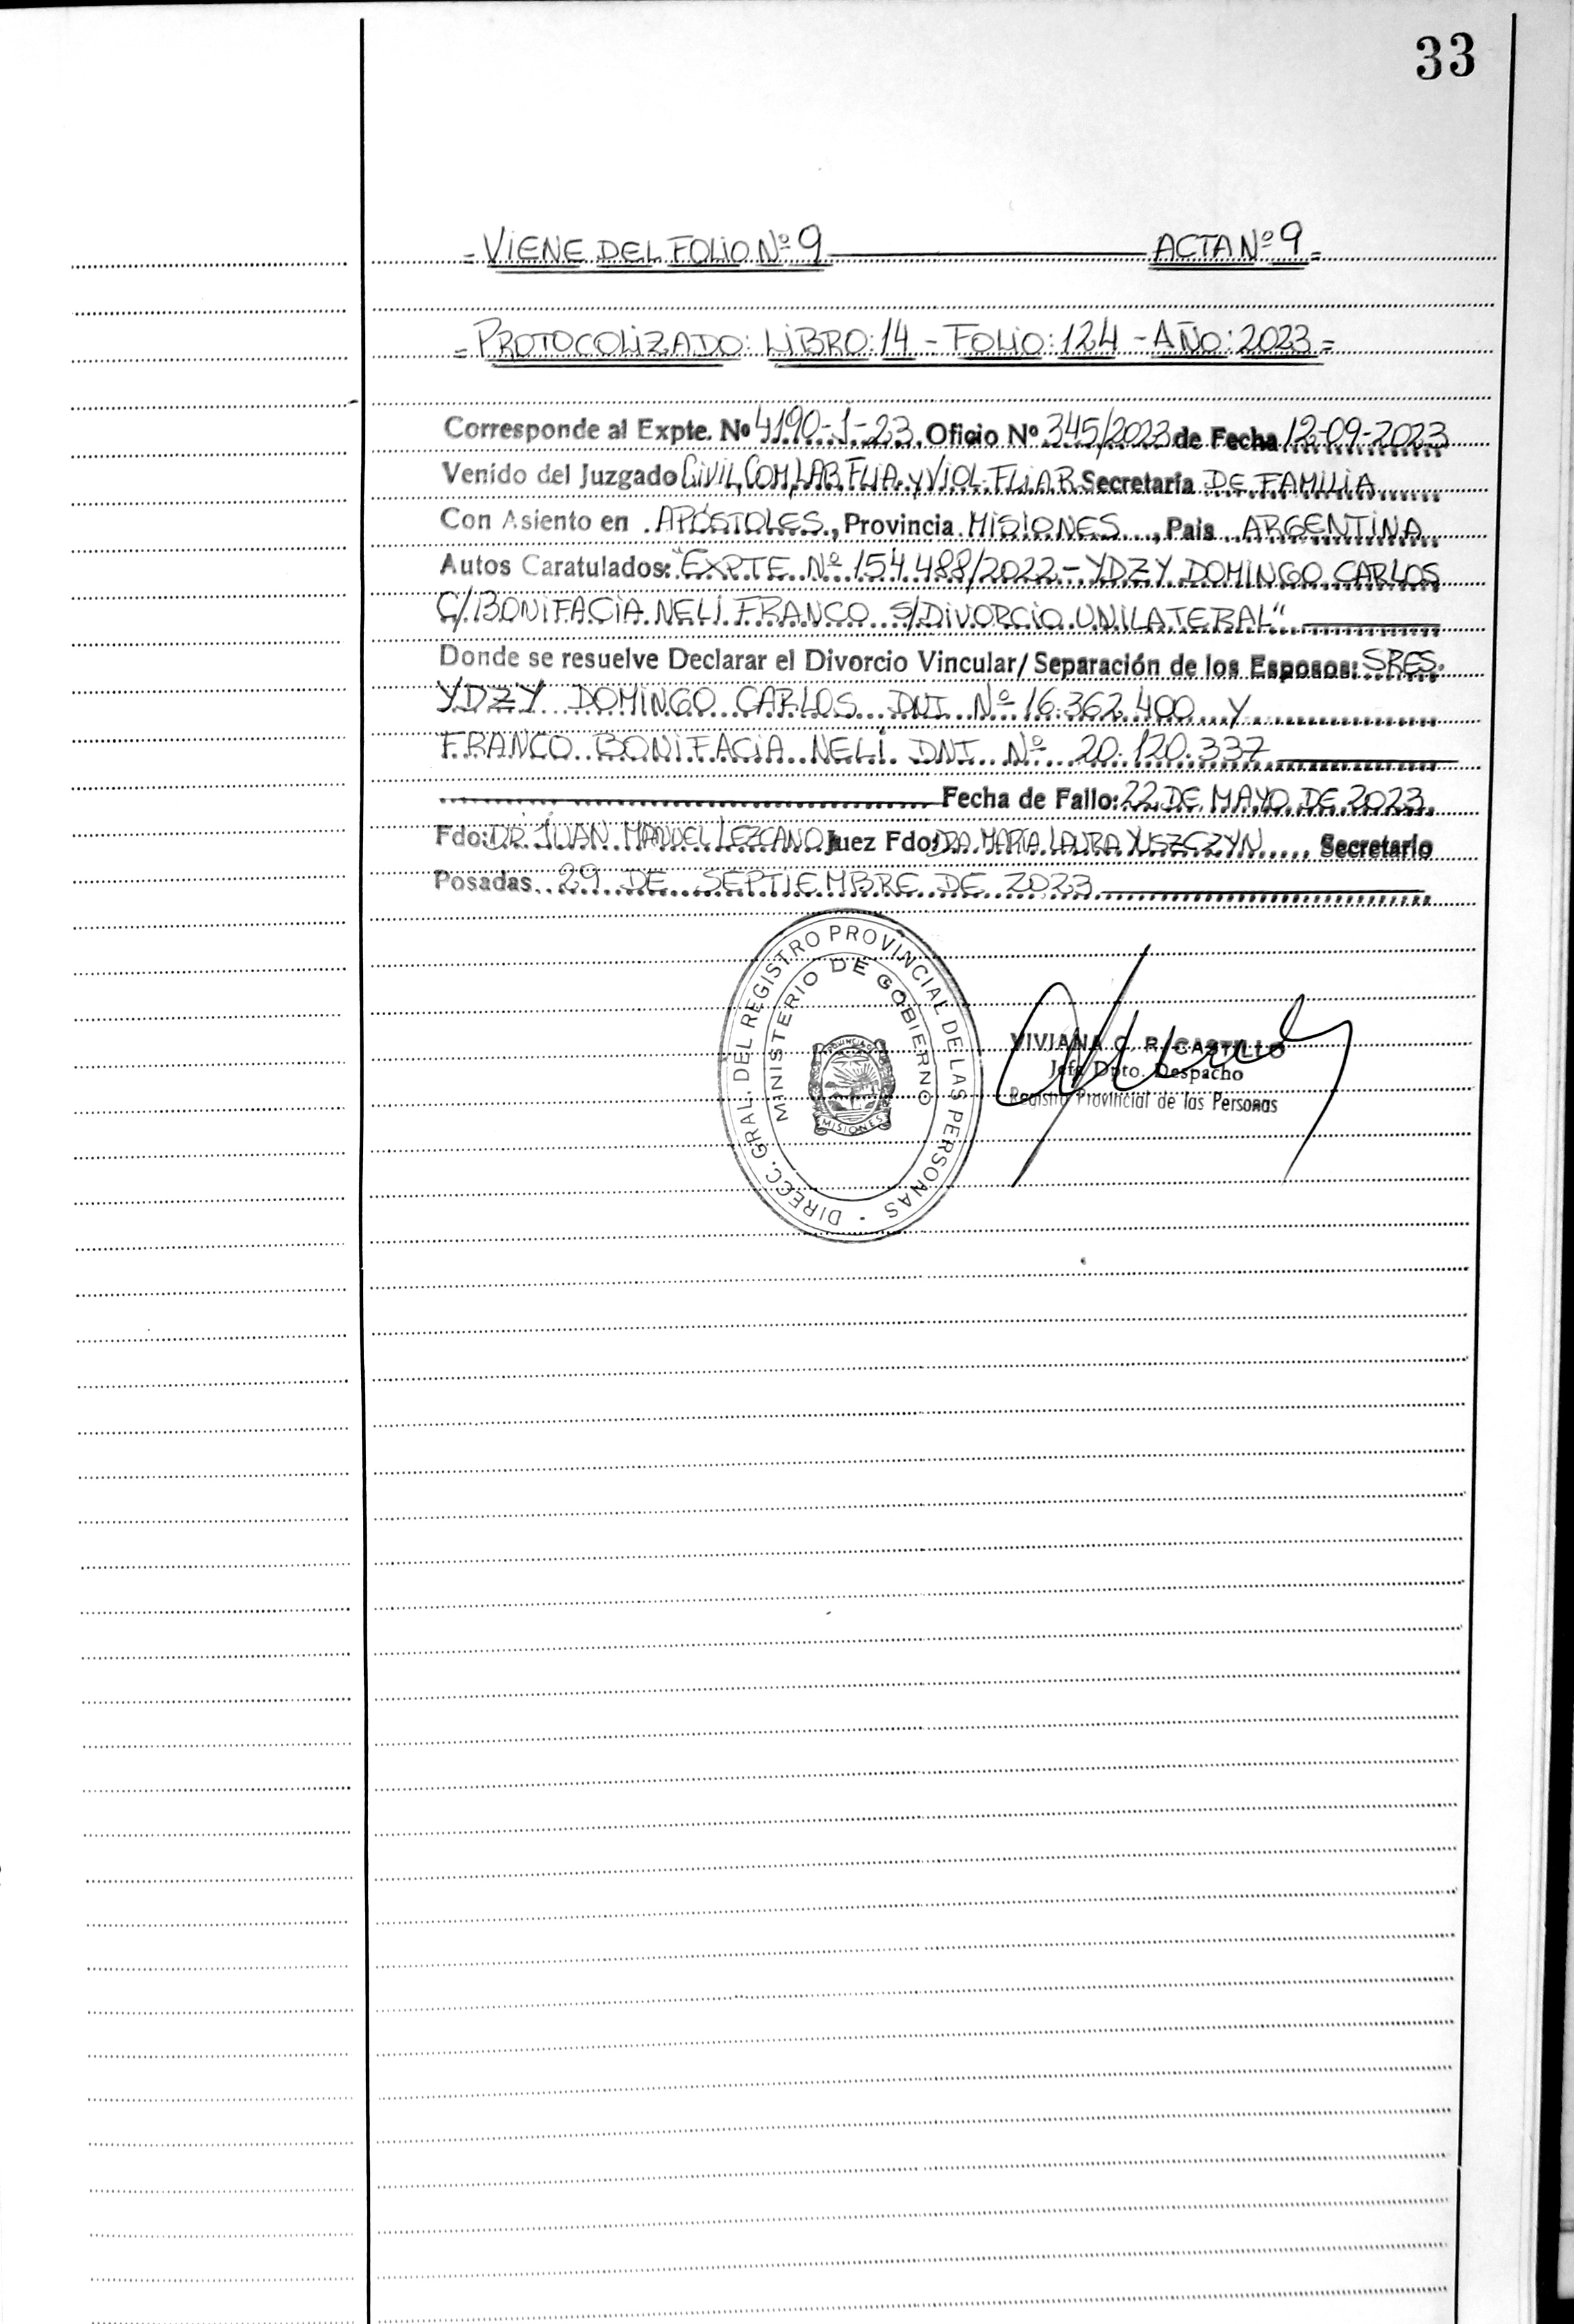 33
= VIENE DEL FOLIO Nº 9 ACTA Nº 9 =
= PROTOCOLIZADO: LIBRO: 14 - FOLIO: 124 - AÑO: 2023 =
Corresponde al Expte. Nº 4190-1-23 Oficio Nº 345/2023 de Fecha 12-09-2023
Venido del Juzgado CIVIL, COM, LAB, FLIA. y VIOL. FLIAR Secretaría DE FAMILIA
Con Asiento en APÓSTOLES, Provincia MISIONES, País ARGENTINA
Autos Caratulados: "EXPTE Nº 154.488/2022 - YDZY DOMINGO CARLOS
C/ BONIFACIA NELI FRANCO S/ DIVORCIO UNILATERAL"
Donde se resuelve Declarar el Divorcio Vincular/Separación de los Esposos: SRES.
YDZY DOMINGO CARLOS DNI Nº 16.362.400 Y
FRANCO BONIFACIA NELI DNI Nº 20.120.337
Fecha de Fallo: 22 DE MAYO DE 2023
Fdo: DR. JUAN MANUEL LEZCANO Juez Fdo: DRA. MARIA LAURA YUSZCZYN Secretario
Posadas 29 DE SEPTIEMBRE DE 2023
DIRECC. GRAL. DEL REGISTRO PROVINCIAL DE LAS PERSONAS
MINISTERIO DE GOBIERNO
PROVINCIA DE
MISIONES
VIVIANA C. R. CASTILLO
Jefe Dpto. Despacho
Registro Provincial de las Personas